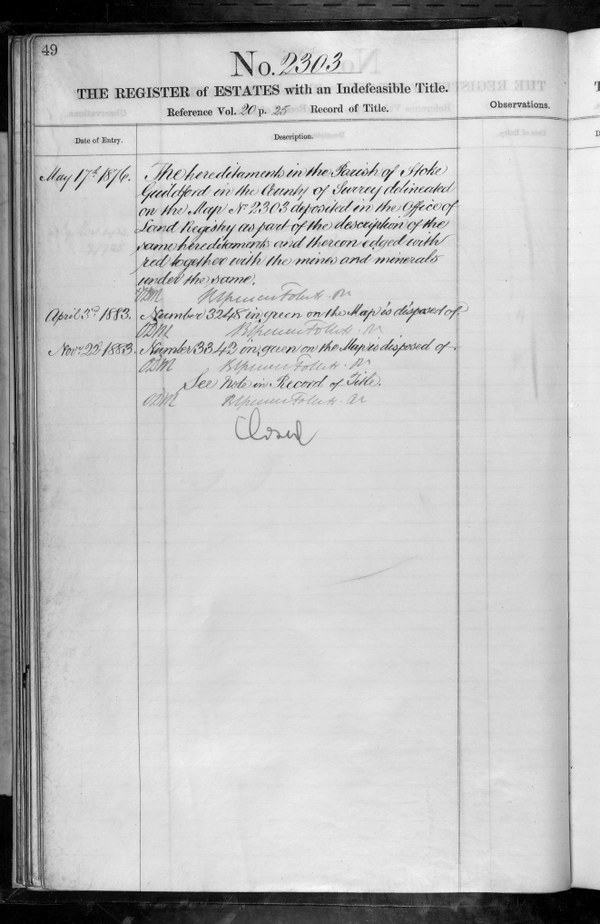 49
No. 2303
THE REGISTER of ESTATES with an Indefeasible Title.
Reference Vol. 20 p. 25 Record of Title.
Observations.
Date of Entry.
Description.
May 17th 1876. The hereditaments in the Parish of Stoke
Guildford in the County of Surrey delineated
on the Map No 2303 deposited in the Office of
Land Registry as part of the description of the
same hereditaments and thereon edged with
red together with the mines and minerals
under the same.
Brent Spencer Follett
April 3rd 1883. Number 3248 in green on the Map is disposed of.
Novr 22 1883. Number 3342 on green on the Map is disposed of.
See Note in Record of Title.
Closed